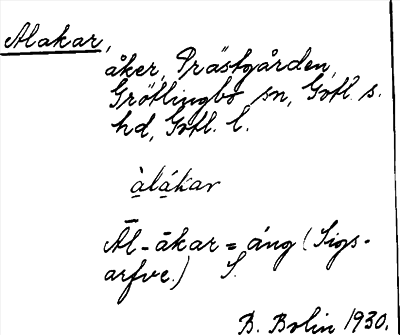 Alakar,
åker, Prästgården,
Grötlingbo sn, Gotl. s.
hd, Gotl. l.
àlákar
Āl-ākar = áng (Sigs-
arfve.) S.
B. Bolin 1930.